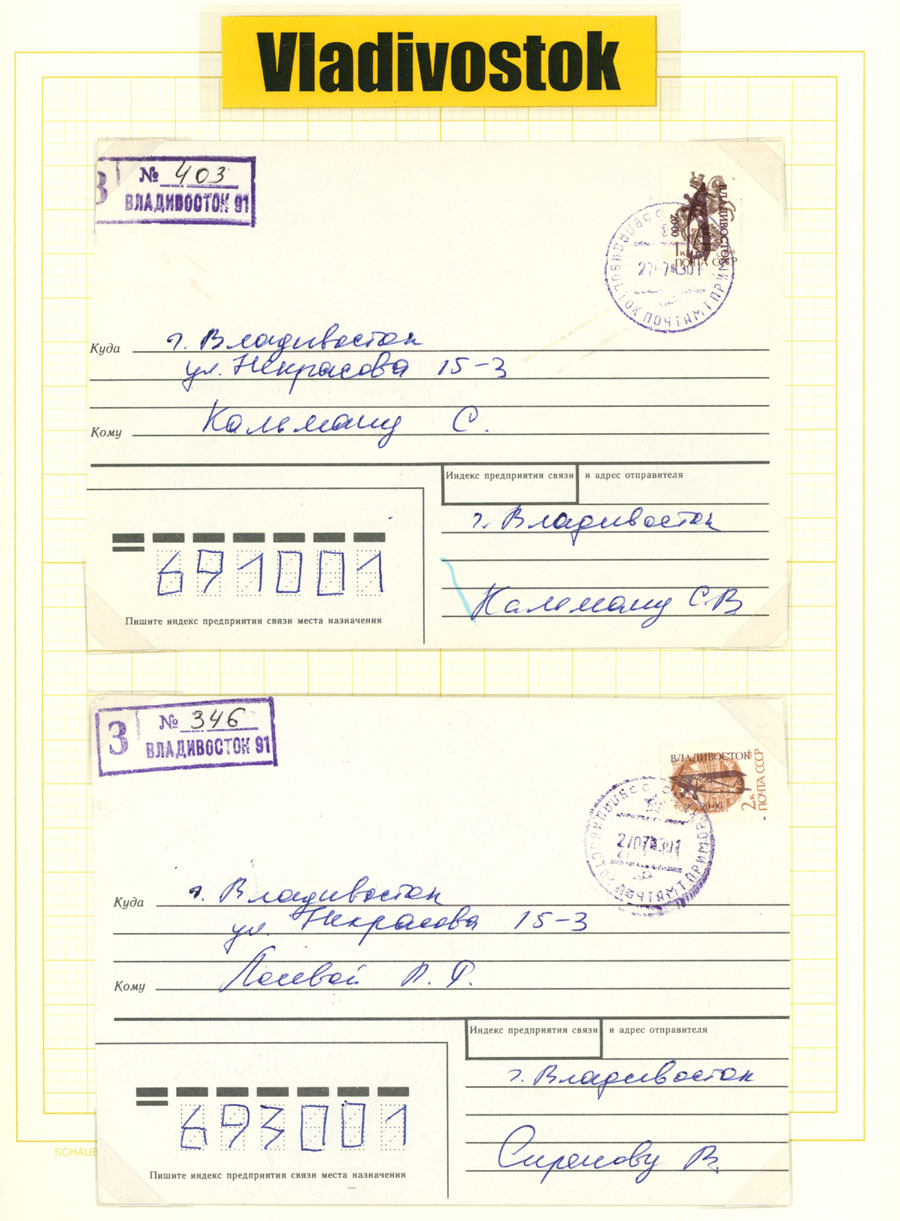 Vladivostok
З № 403
ВЛАДИВОСТОК 91
ВЛАДИВОСТОК
20-00
1к
ПОЧТА СССР
ВЛАДИВОСТОК ПОЧТАМТ ПРИМ
Куда г. Владивосток
ул. Некрасова 15-3
Кому Кальману С.
Индекс предприятия связи и адрес отправителя
г. Владивосток
Кальману С.В
691001
Пишите индекс предприятия связи места назначения
З № 346
ВЛАДИВОСТОК 91
ВЛАДИВОСТОК
20-00
2к
ПОЧТА СССР
ПОЧТАМТ ПРИМОР
Куда г. Владивосток
ул. Некрасова 15-3
Кому Полевой П. Ф.
Индекс предприятия связи и адрес отправителя
г. Владивосток
693001
Пишите индекс предприятия связи места назначения
В.
SCHAUB